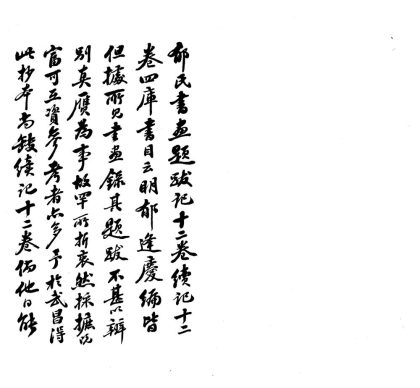 郁氏書画題跋記十二卷續記十二
卷四庫書目云明郁逢慶編皆
但據所見書画錄其題跋不甚以辨
別真贋為事故罕所折衷然採摭既
富可互資參考者亦多予於武昌得
此抄本尚缺續記十二卷倘他日能